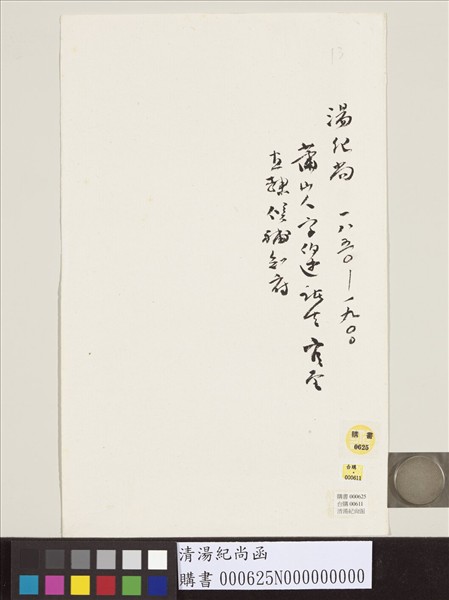 13
湯紀尚 一八五〇—一九〇〇
蕭山人字伯述諸生官至
直隸候補知府
購書
0625
台購
000611
購書 000625
台購 00611
清湯紀尚函
清湯紀尚函
購書 000625N000000000